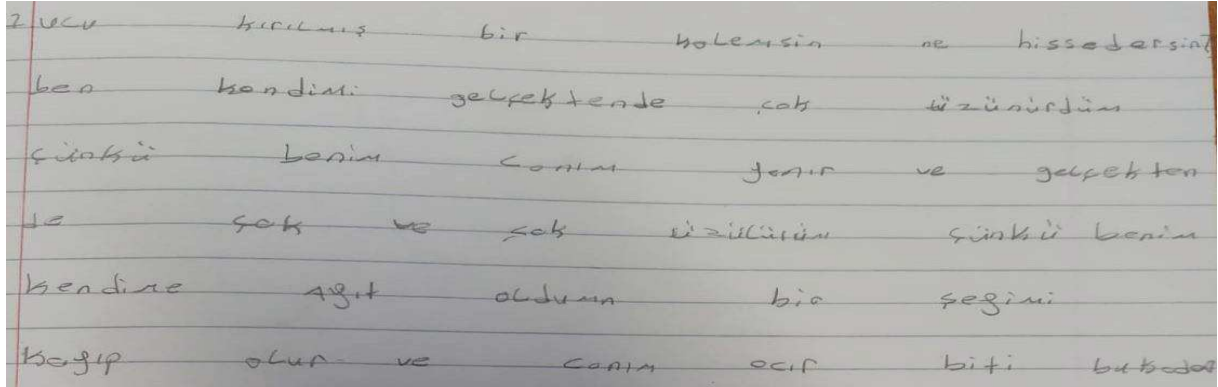 2 ucu kırılmış bir kalemsin ne hissedersin?
ben kendimi gelçektende çok üzünürdüm
çünkü benim canım yanır ve gelçekten
de çok ve çok üzülürüm çünkü benim
kendime ağıt oldumn bir şeğimi
kağıp olur ve canım acır biti bukadar